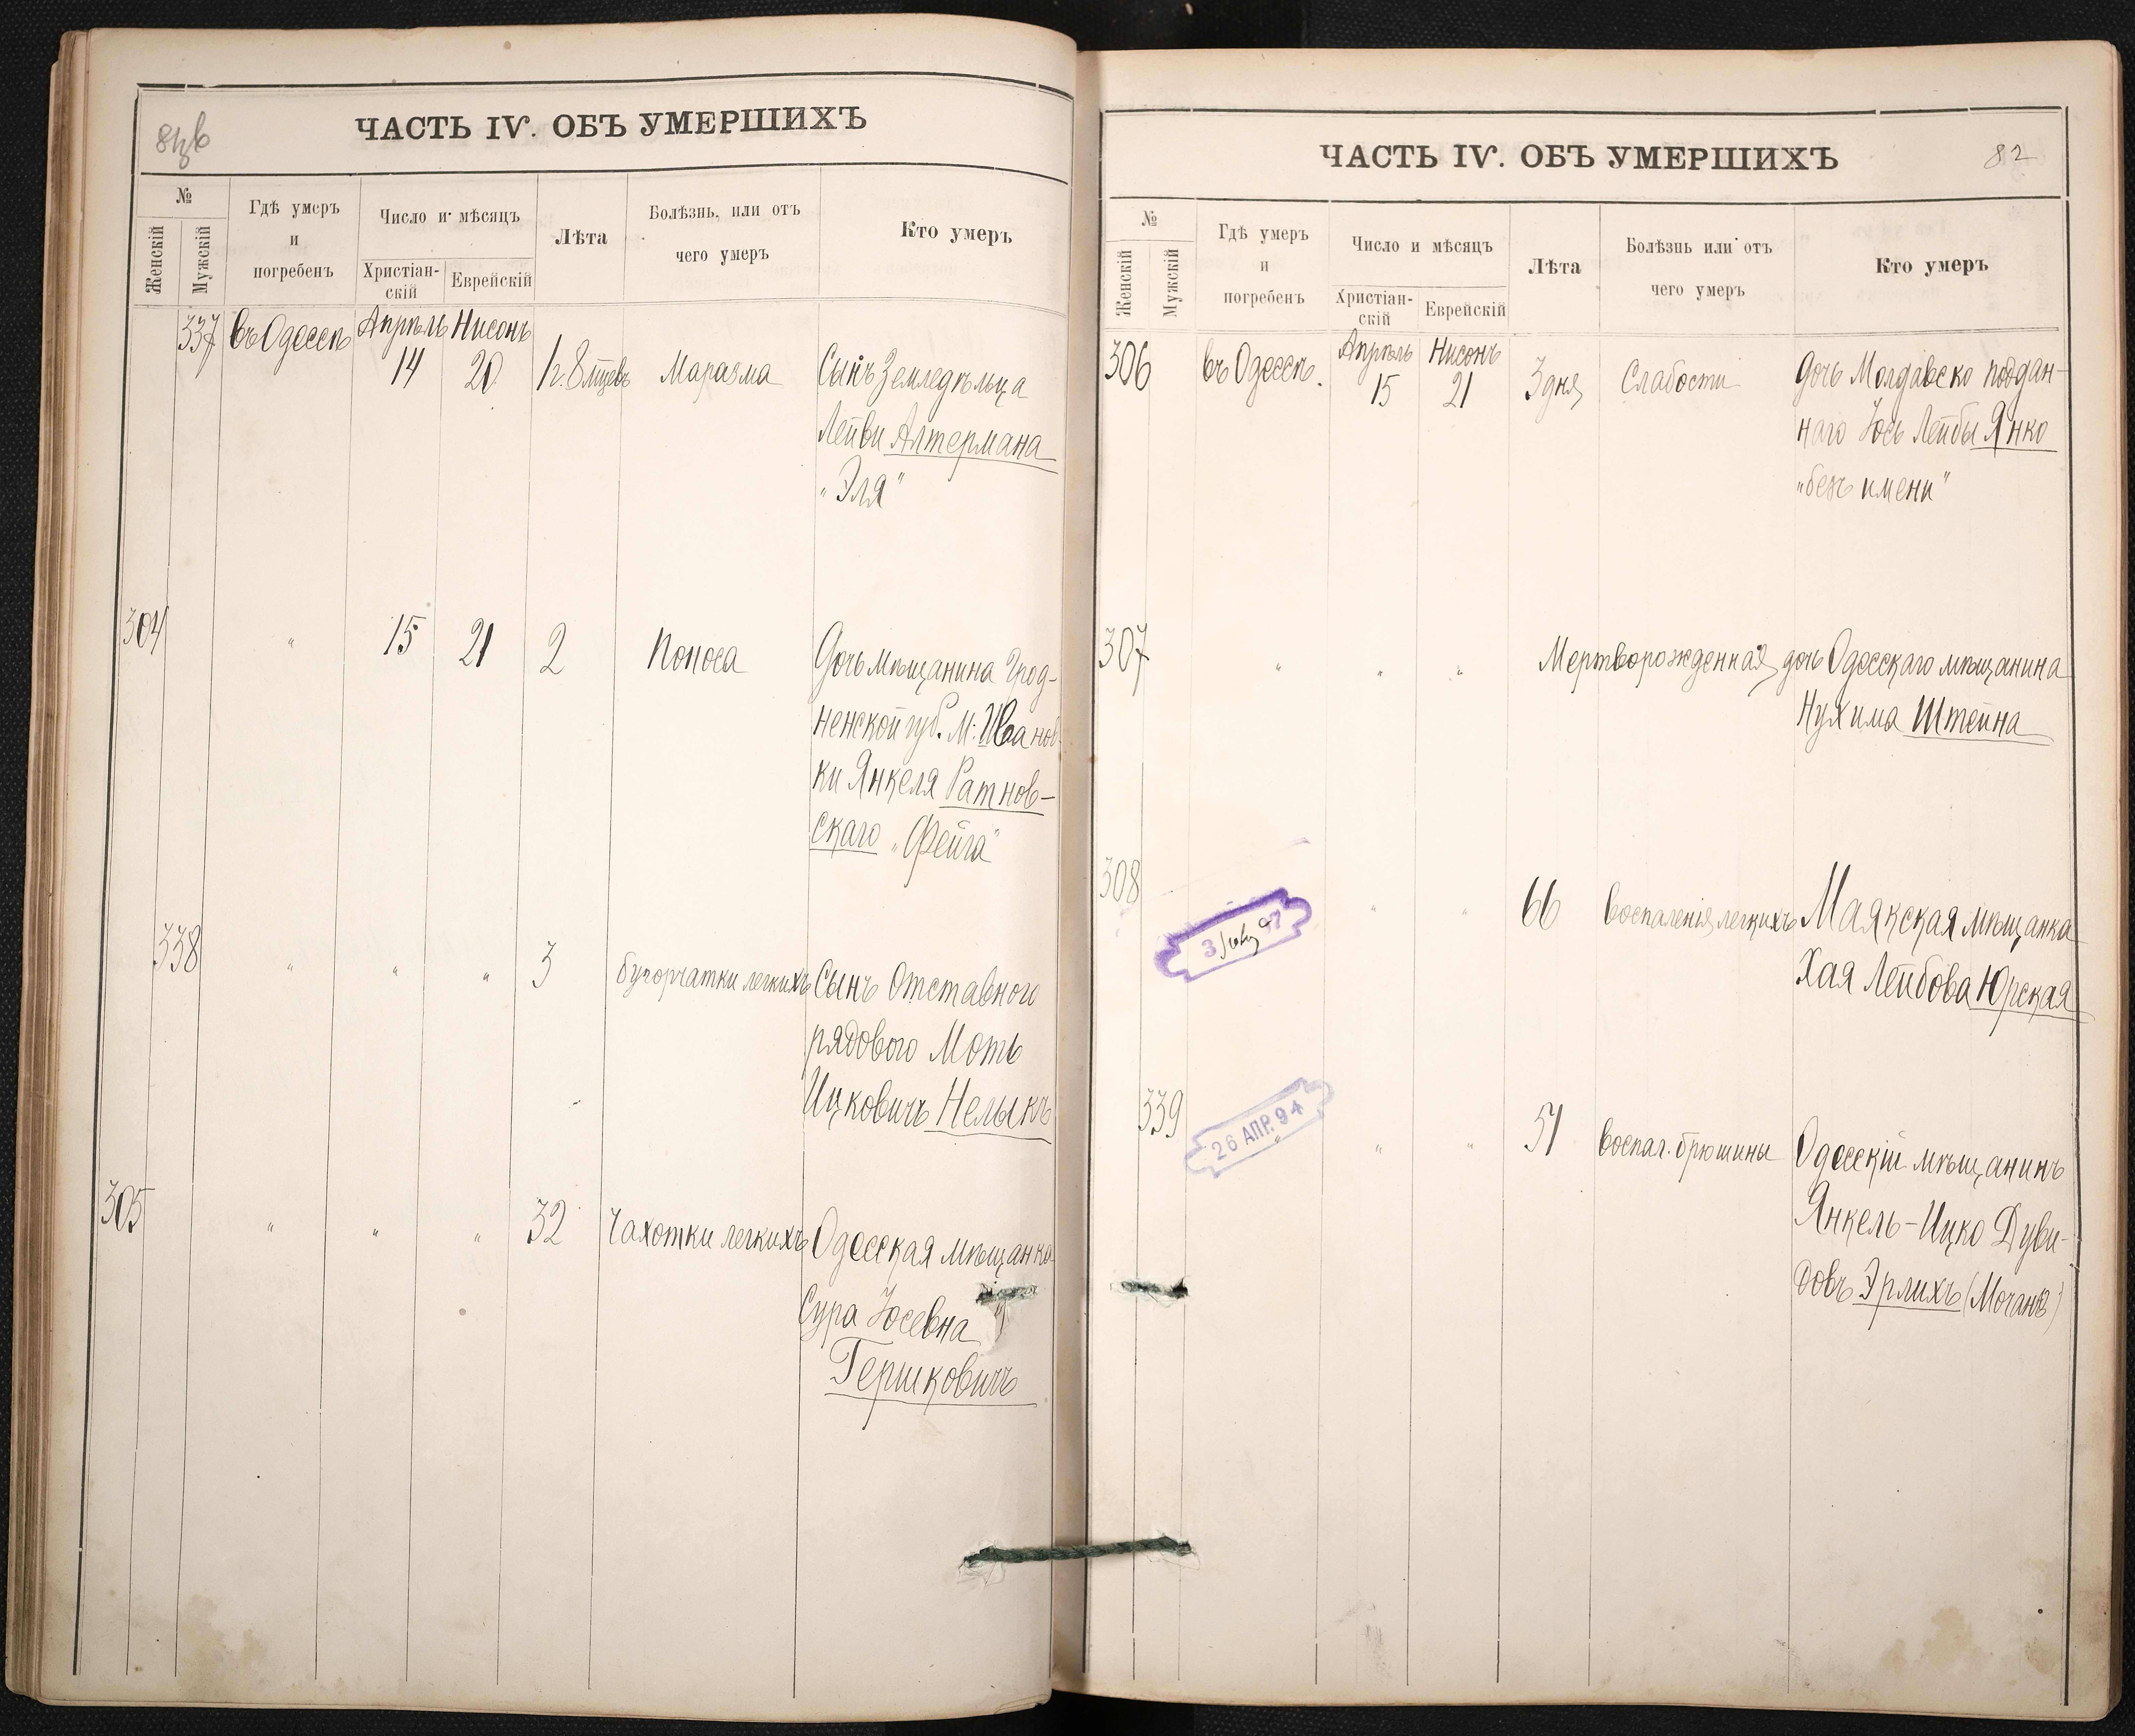 ЧАСТЬ IV. ОБЪ УМЕРШИХЪ
№
Женскій
Мужскій
Гдѣ умеръ
и
погребенъ
Число и мѣсяцъ
Христіан-
скій
Еврейскій
Лѣта
Болѣзнь, или отъ
чего умеръ
Кто умеръ
337 въ Одессѣ Апрѣль Нисонъ
14 20 1 г. 8 мцевъ Маразма Сынъ Земледѣльца
Лейви Алтермана
"Эля"
304 " 15 21 2 Поноса Дочь мѣщанина Грод-
ненской губ. М: Иванов-
ки Янкеля Ратнов-
скаго "Фейга"
338 " " " 3 бугорчатки легкихъ Сынъ Отставного
рядового Моть
Ицковичъ Нелыкъ
305 " " " 32 Чахотки легкихъ Одесская мѣщанка
Сура Іосевна
Гершковичъ
ЧАСТЬ IV. ОБЪ УМЕРШИХЪ
82
№
Женскій
Мужскій
Гдѣ умеръ
и
погребенъ
Число и мѣсяцъ
Христіан-
скій
Еврейскій
Лѣта
Болѣзнь или отъ
чего умеръ
Кто умеръ
306 въ Одессѣ. Апрѣль Нисонъ
15 21 3 дня Слабости Дочь Молдавско поддан-
наго Іось Лейбы Янко
"безъ имени"
307 " " " Мертворожденная дочь Одесскаго мѣщанина
Нухима Штейна
308 " " 66 Воспаленія легкихъ Маякская мѣщанка
Хая Лейбова Юрская
339 " " " 51 Воспал. брюшины Одесскій мѣщанинъ
26 АПР. 94
Янкель-Ицко Дуви-
довъ Эрлихъ (Мочанъ)